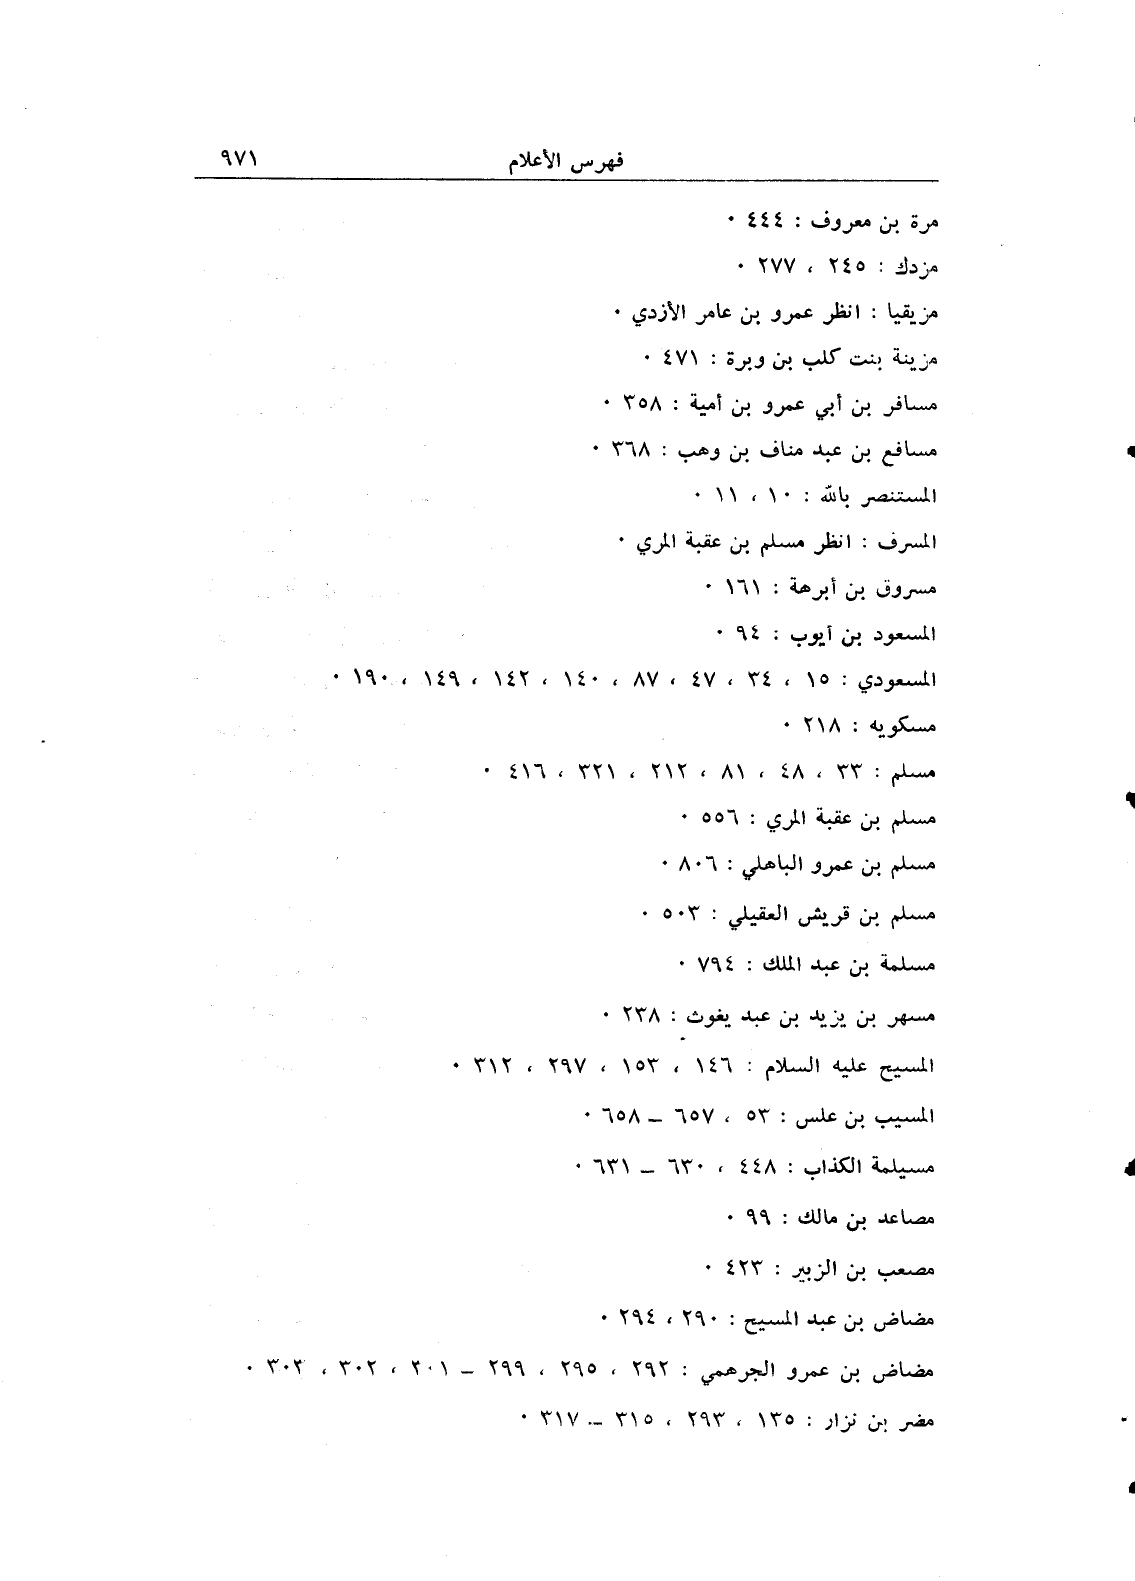 فهرس الأعلام ٩٧١
مرة بن معروف : ٤٤٤ ٠
مزدك : ٢٤٥ ، ٢٧٧ ٠
مزيقيا : انظر عمرو بن عامر الأزدي ٠
مزينة بنت كلب بن وبرة : ٤٧١ ٠
مسافر بن أبي عمرو بن أمية : ٣٥٨ ٠
مسافع بن عبد مناف بن وهب : ٣٦٨ ٠
المستنصر بالله : ١٠ ، ١١ ٠
المسرف : انظر مسلم بن عقبة المري ٠
مسروق بن أبرهة : ١٦١ ٠
المسعود بن أيوب : ٩٤ ٠
المسعودي : ١٥ ، ٣٤ ، ٤٧ ، ٨٧ ، ١٤٠ ، ١٤٢ ، ١٤٩ ، ١٩٠ ٠
مسكويه : ٢١٨ ٠
مسلم : ٣٣ ، ٤٨ ، ٨١ ، ٢١٢ ، ٣٢١ ، ٤١٦ ٠
مسلم بن عقبة المري : ٥٥٦ ٠
مسلم بن عمرو الباهلي : ٨٠٦ ٠
مسلم بن قريش العقيلي : ٥٠٣ ٠
مسلمة بن عبد الملك : ٧٩٤ ٠
مسهر بن يزيد بن عبد يغوث : ٢٣٨ ٠
المسيح عليه السلام : ١٤٦ ، ١٥٣ ، ٢٩٧ ، ٣١٢ ٠
المسيب بن علس : ٥٣ ، ٦٥٧ – ٦٥٨ ٠
مسيلمة الكذاب : ٤٤٨ ، ٦٣٠ – ٦٣١ ٠
مصاعد بن مالك : ٩٩ ٠
مصعب بن الزبير : ٤٢٣ ٠
مضاض بن عبد المسيح : ٢٩٠ ، ٢٩٤ ٠
مضاض بن عمرو الجرهمي : ٢٩٢ ، ٢٩٥ ، ٢٩٩ – ٣٠١ ، ٣٠٢ ، ٣٠٣ ٠
مضر بن نزار : ١٣٥ ، ٢٩٣ ، ٣١٥ – ٣١٧ ٠